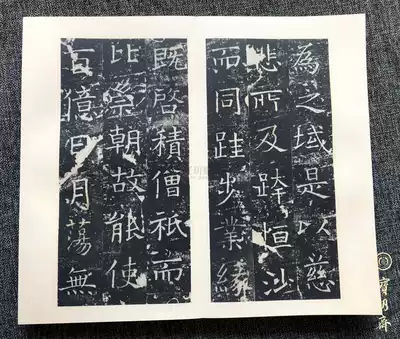 為之域是以慈
悲所及跨恒沙
而同跬步業緣
既啓積僧祇而
比崇朝故能使
百億日月蕩無